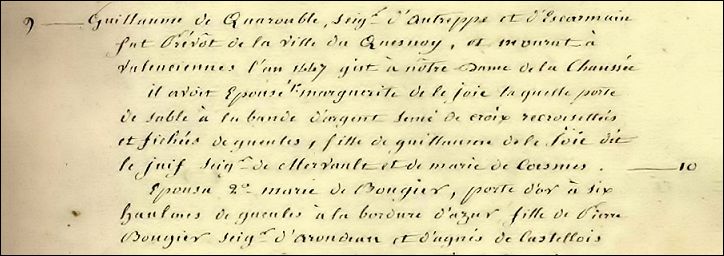 9 — Guillaume de Quarouble, seigr. d'autreppe et d'Escarmain
fut Prévot de la ville du Quesnoy, et mourut à
valenciennes l'an 1447 gist à nôtre Dame de la Chaussée
il avoit Epousé 1°. marguerite de le joie laquelle porte
de sable à la bande d'argent semé de croix recroisellés
et fichés de gueules, fille de guillaume de le Joie dit
le juif seigr. de Mervault et de marie de Coesmes. — 10
Epousa 2°. marie de Bougier, porte d'or à six
haulmes de gueules à la bordure d'azur fille de Pierre
Bougier seigr. d'arondeau et d'agnés de Castellois